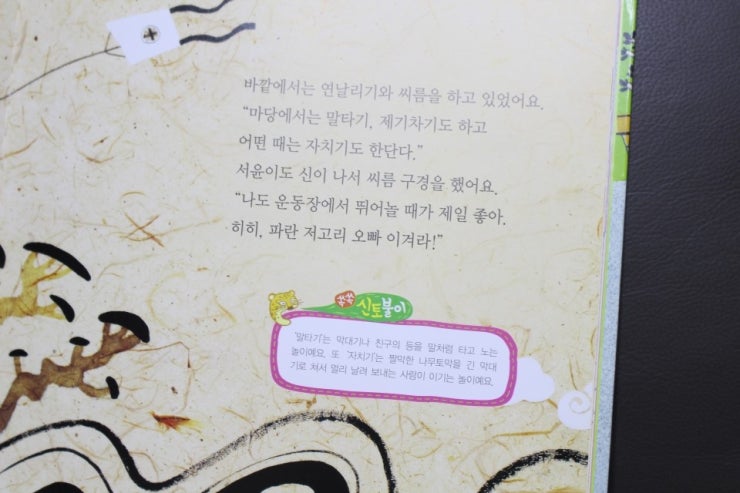 바깥에서는 연날리기와 씨름을 하고 있었어요.
“마당에서는 말타기, 제기차기도 하고
어떤 때는 자치기도 한단다.”
서윤이도 신이 나서 씨름 구경을 했어요.
“나도 운동장에서 뛰어놀 때가 제일 좋아.
히히, 파란 저고리 오빠 이겨라!”
쏙쏙 신토불이
'말타기'는 막대기나 친구의 등을 말처럼 타고 노는
놀이예요. 또 '자치기'는 짤막한 나무토막을 긴 막대
기로 쳐서 멀리 날려 보내는 사람이 이기는 놀이예요.